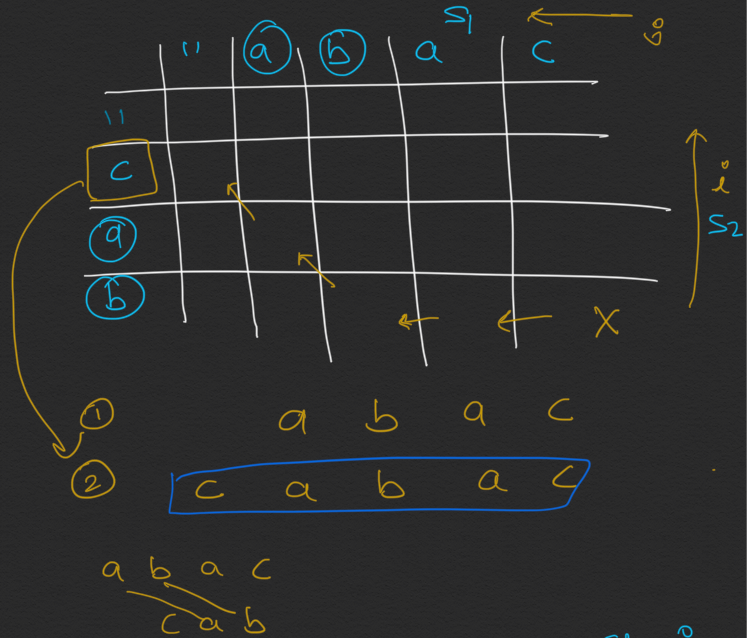 S1 j
" a b a c
"
c i
a S2
b
X
① a b a c
② c a b a c
a b a c
c a b